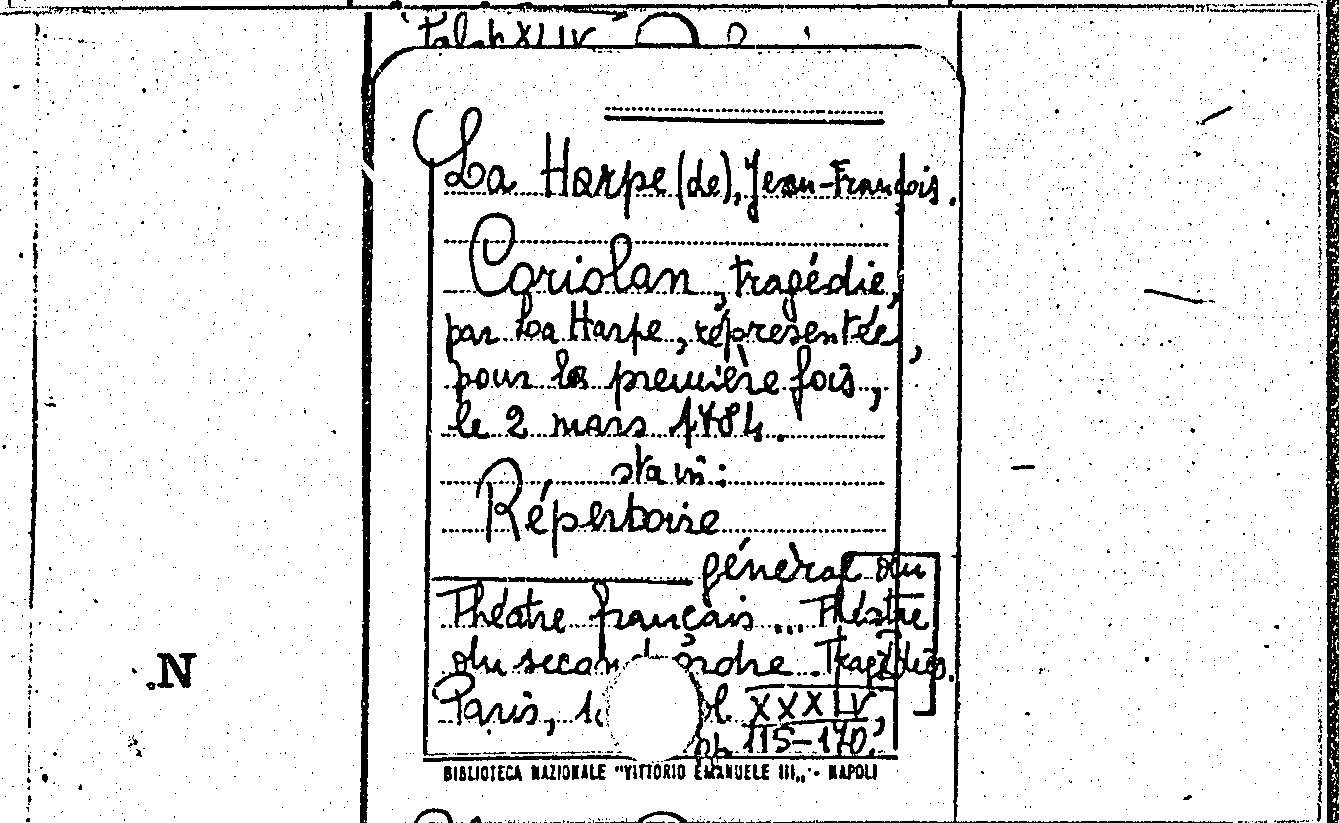 Palat XLIV
La Harpe (de), Jean-François.
Coriolan, tragédie,
par La Harpe, représentée,
pour la première fois,
le 2 mars 1784.
sta in:
Répertoire
général du
Théâtre français... Théatre
du second ordre. Tragédies.
Paris, vol XXXIV,
pp 115-170.
BIBLIOTECA NAZIONALE "VITTORIO EMANUELE III„ - NAPOLI
N